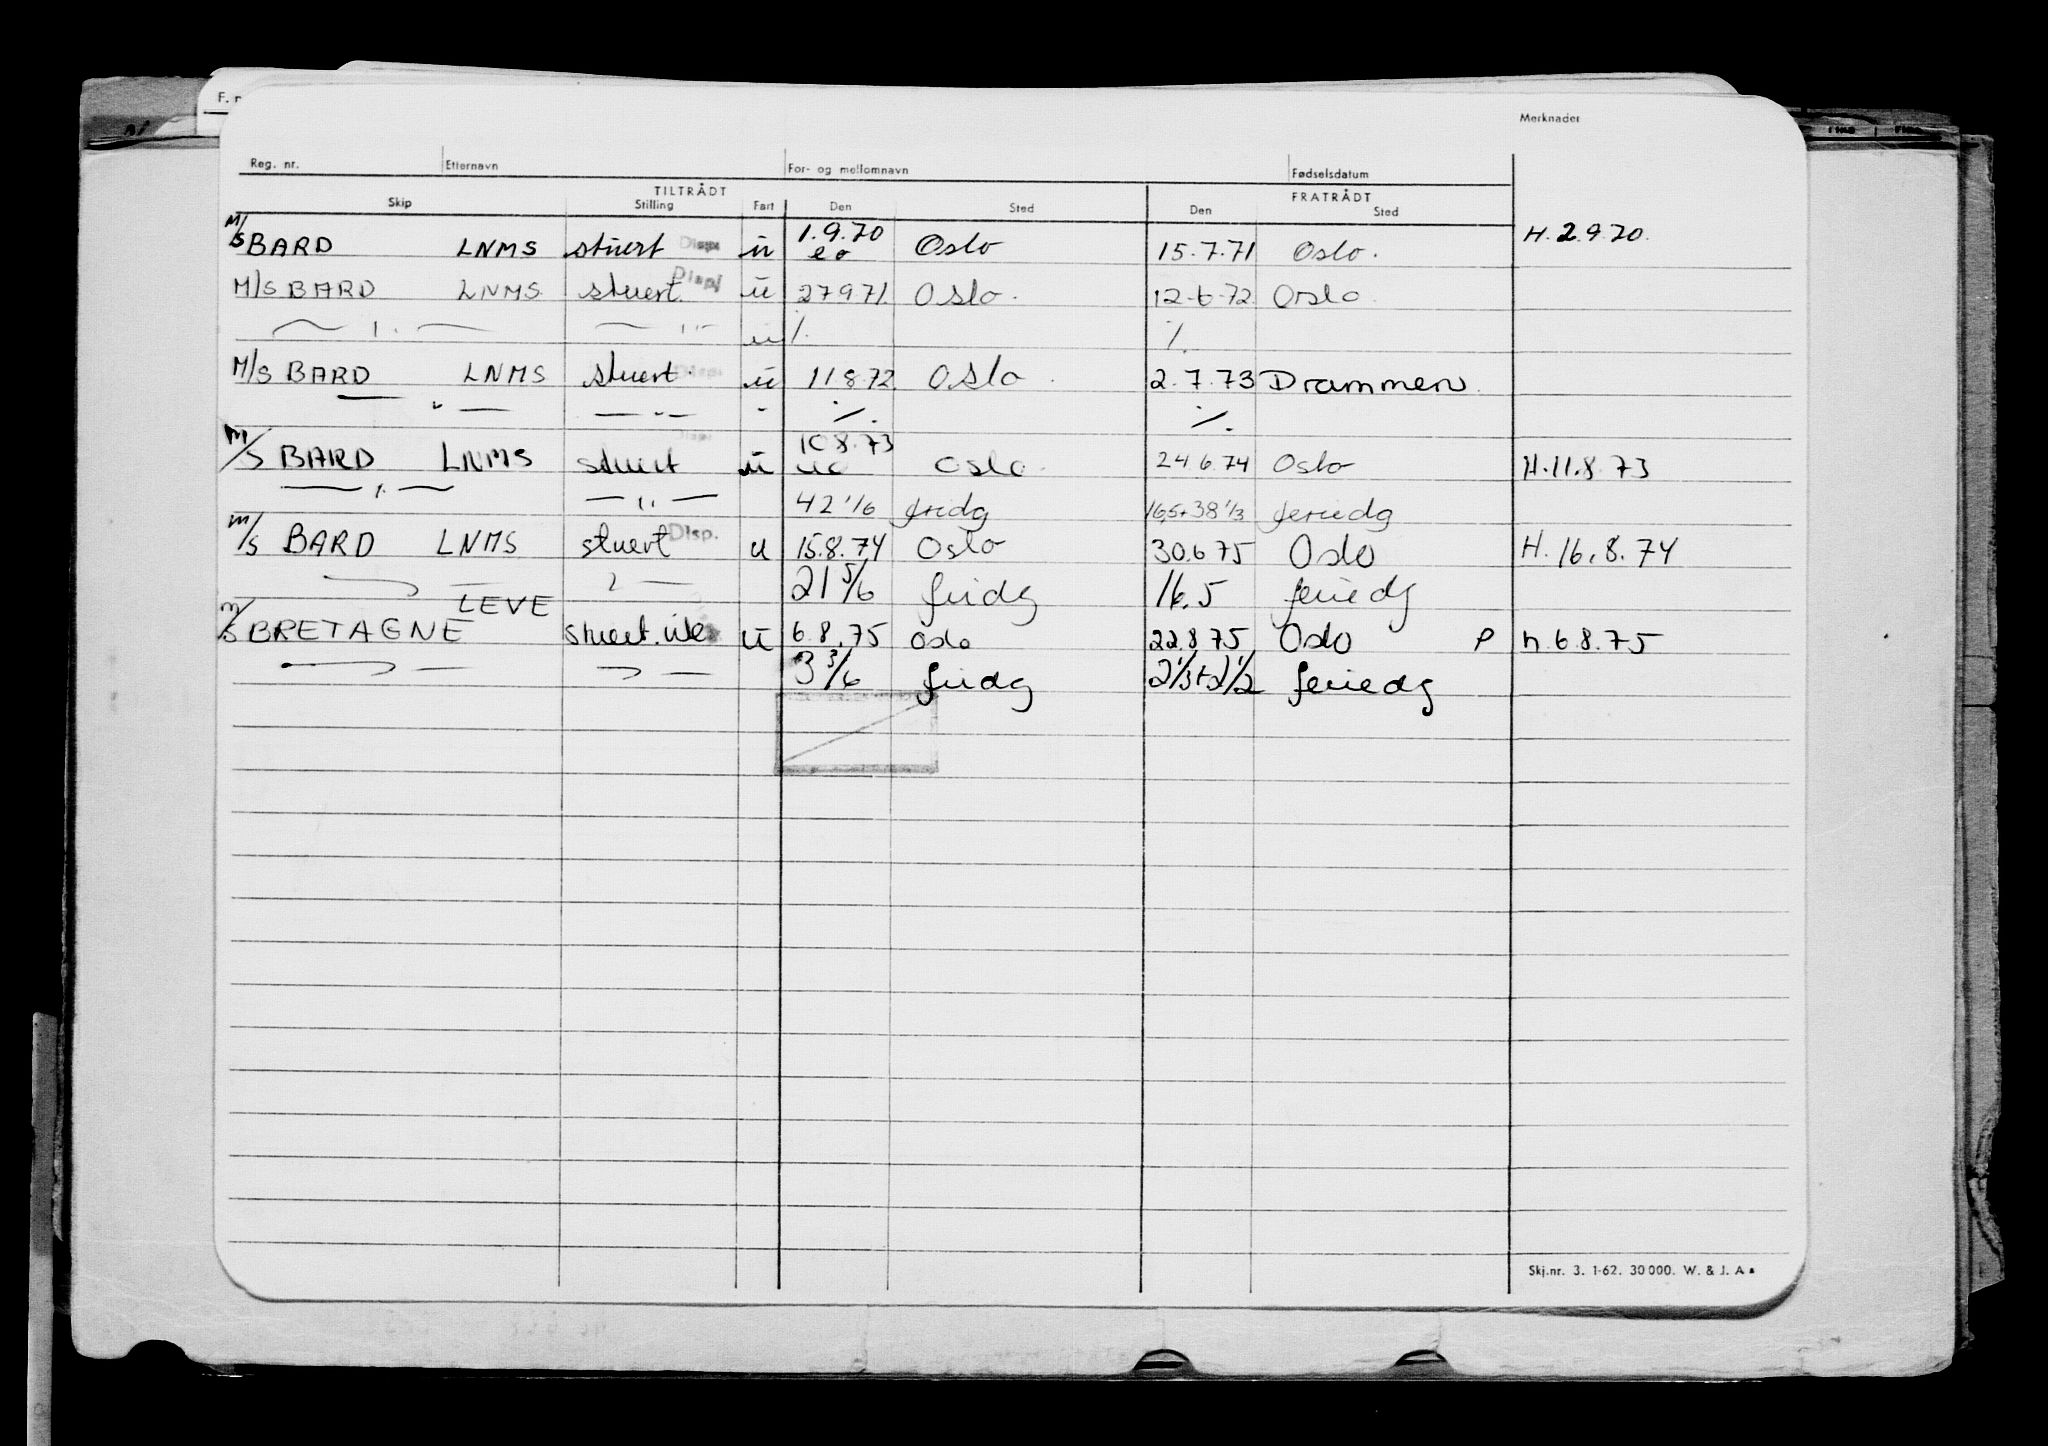 F. n
Merknader
Reg. nr. Etternavn For- og mellomnavn Fødselsdatum
TILTRÅDT FRATRÅDT
Skip Stilling Fart Den Sted Den Sted
M/S BARD LNMS stuert Disp. u 1.9.70 Oslo 15.7.71 Oslo. H. 2.9.70.
M/S BARD LNMS. stuert. Disp. u 27971. Oslo. 12-6-72 Oslo.
— " — — " — u ./. ./.
M/S BARD LNMS stuert. Disp. u 11.8.72. Oslo. 2.7.73 Drammen.
— " — — " — " ./. ./.
M/S BARD LNMS stuert Disp. u 10.8.73 Oslo. 24.6.74 Oslo H.11.8.73
— " — — " — 42 1/6 fridg 16,5+38 1/3 feriedg
M/S BARD LNMS stuert Disp. u 15.8.74 Oslo 30.6.75 Oslo H. 16.8.74
— " — — " — 21 5/6 fridg 16.5 feriedg
LEVE
M/S BRETAGNE stuert. u 6.8.75 Oslo 22.8.75 Oslo P h.6.8.75
— " — — " — 3 3/6 fridg 2 1/3+2 1/2 feriedg
Skj.nr. 3. 1-62. 30 000. W. & J. A